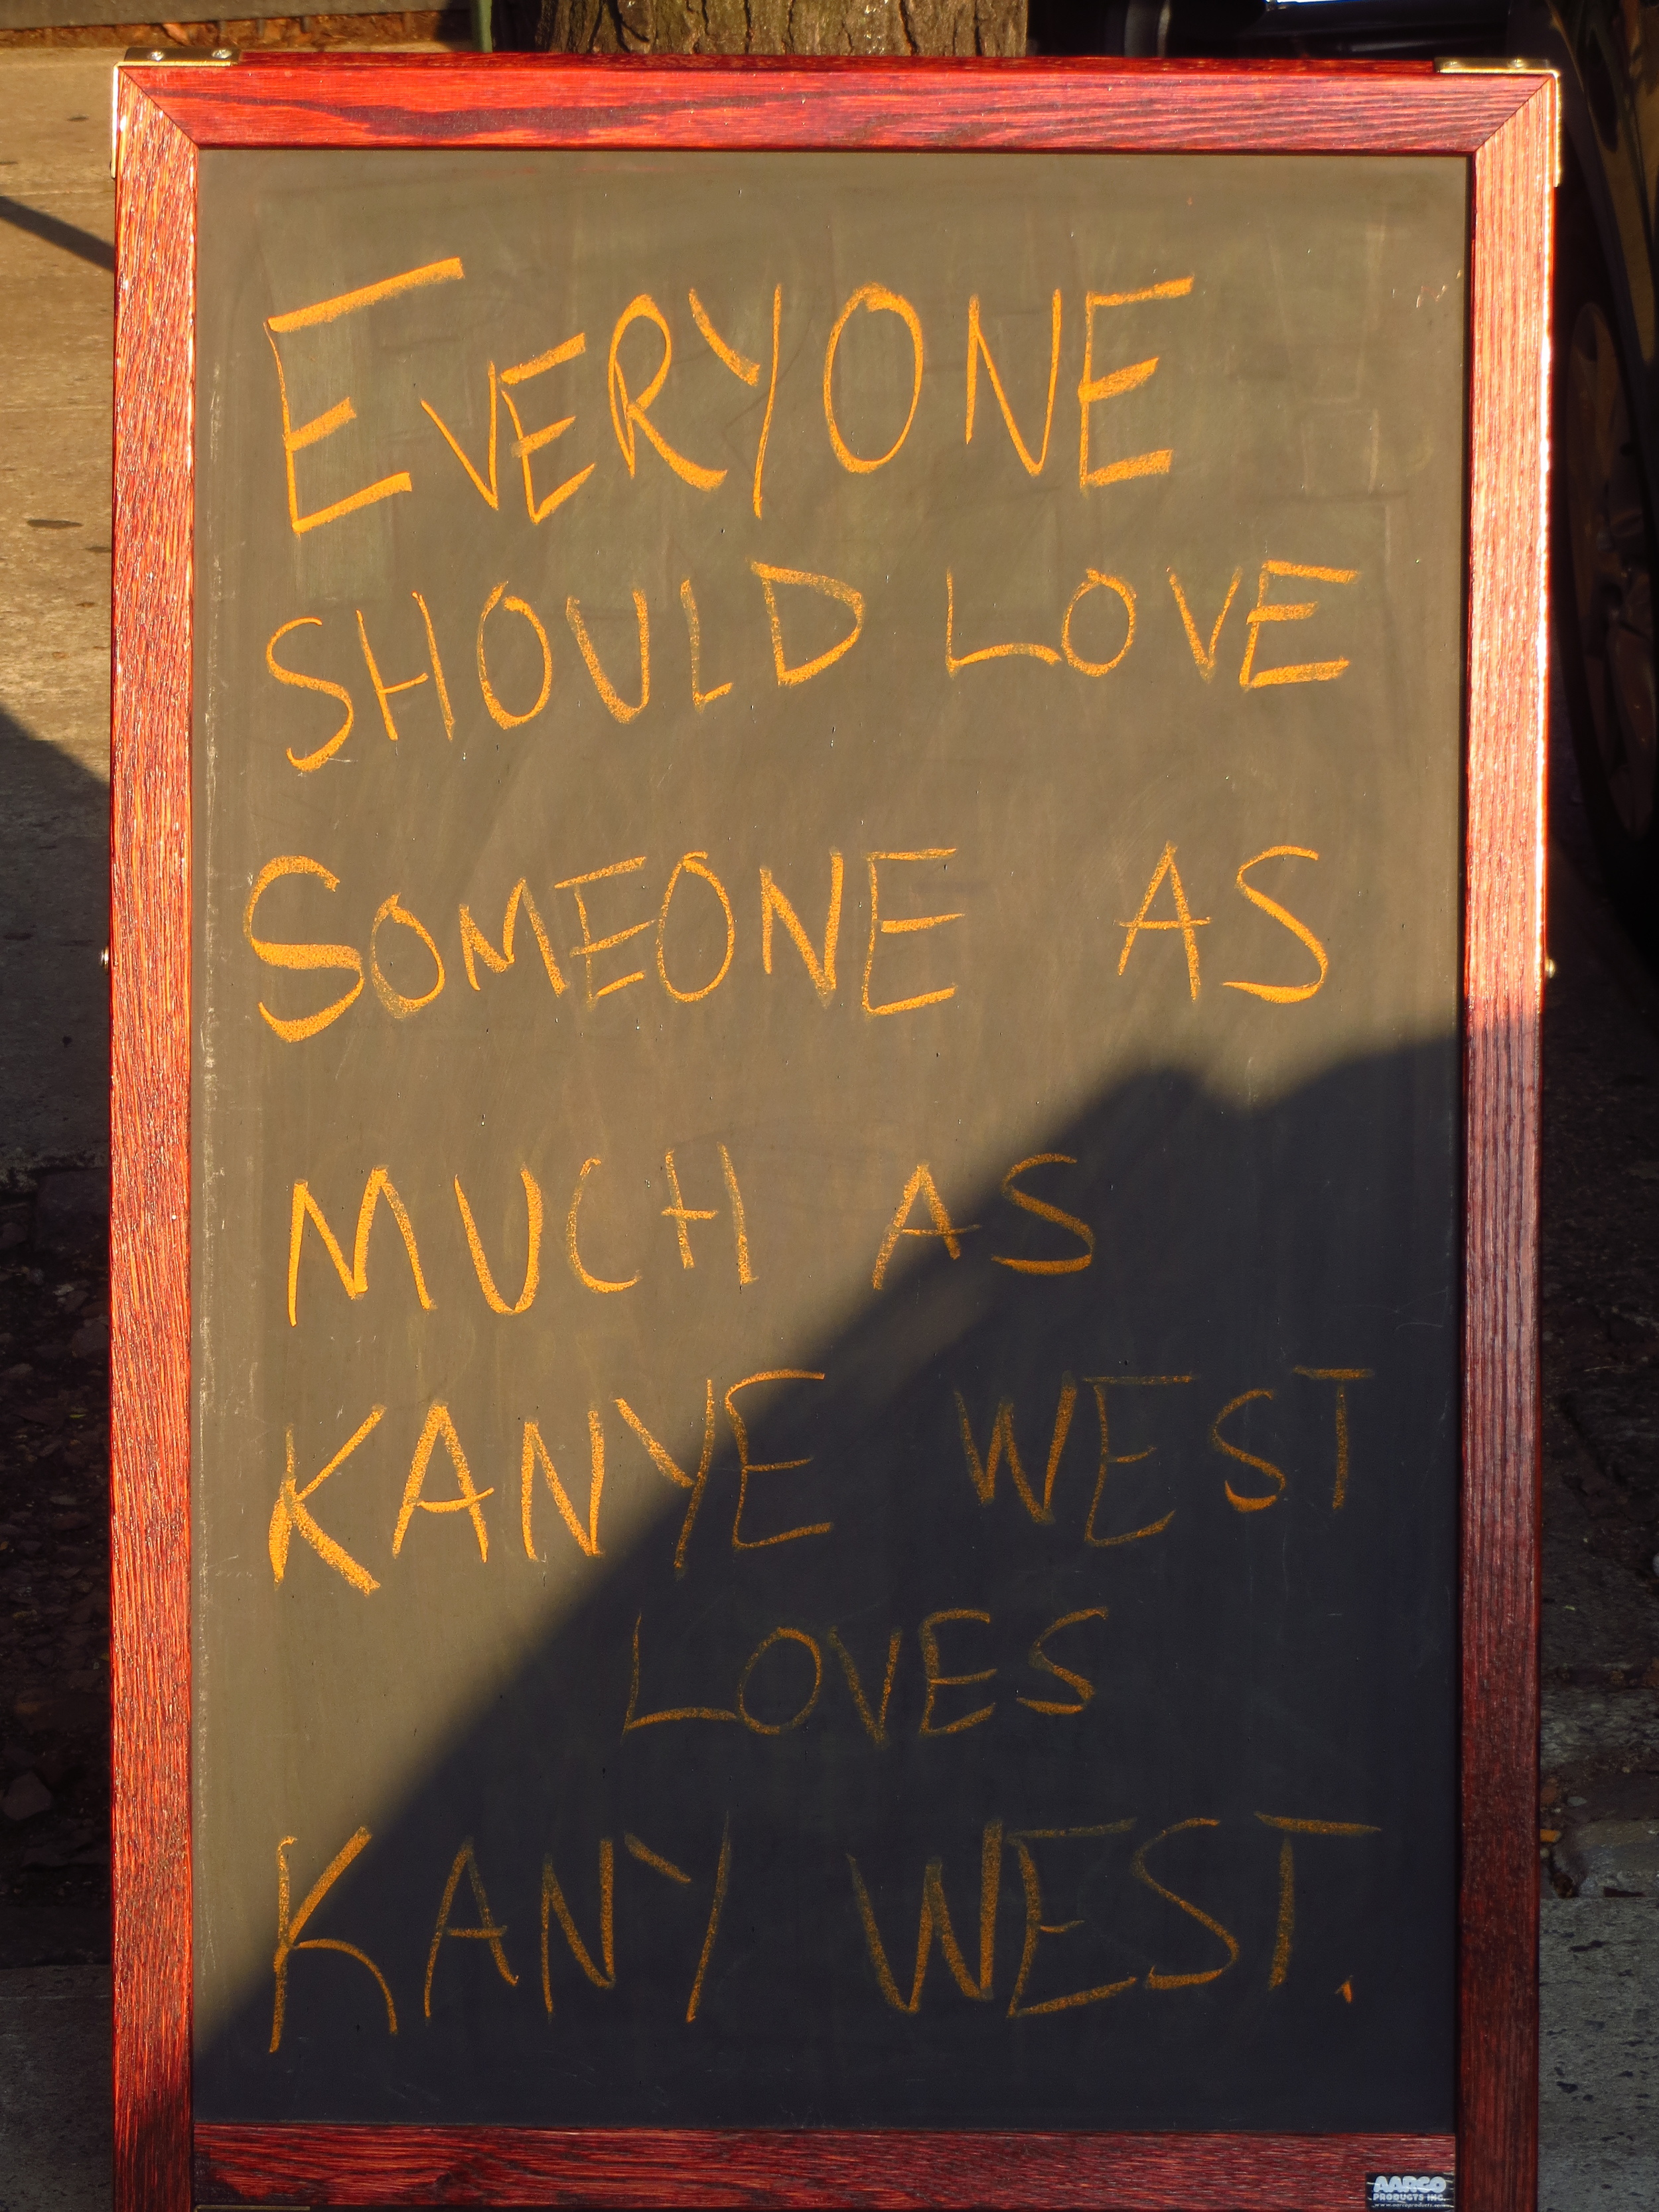 EVERYONE
SHOULD LOVE
SOMEONE AS
MUCH AS
KANYE WEST
LOVES
KANY WEST.
AARCO
PRODUCTS INC.